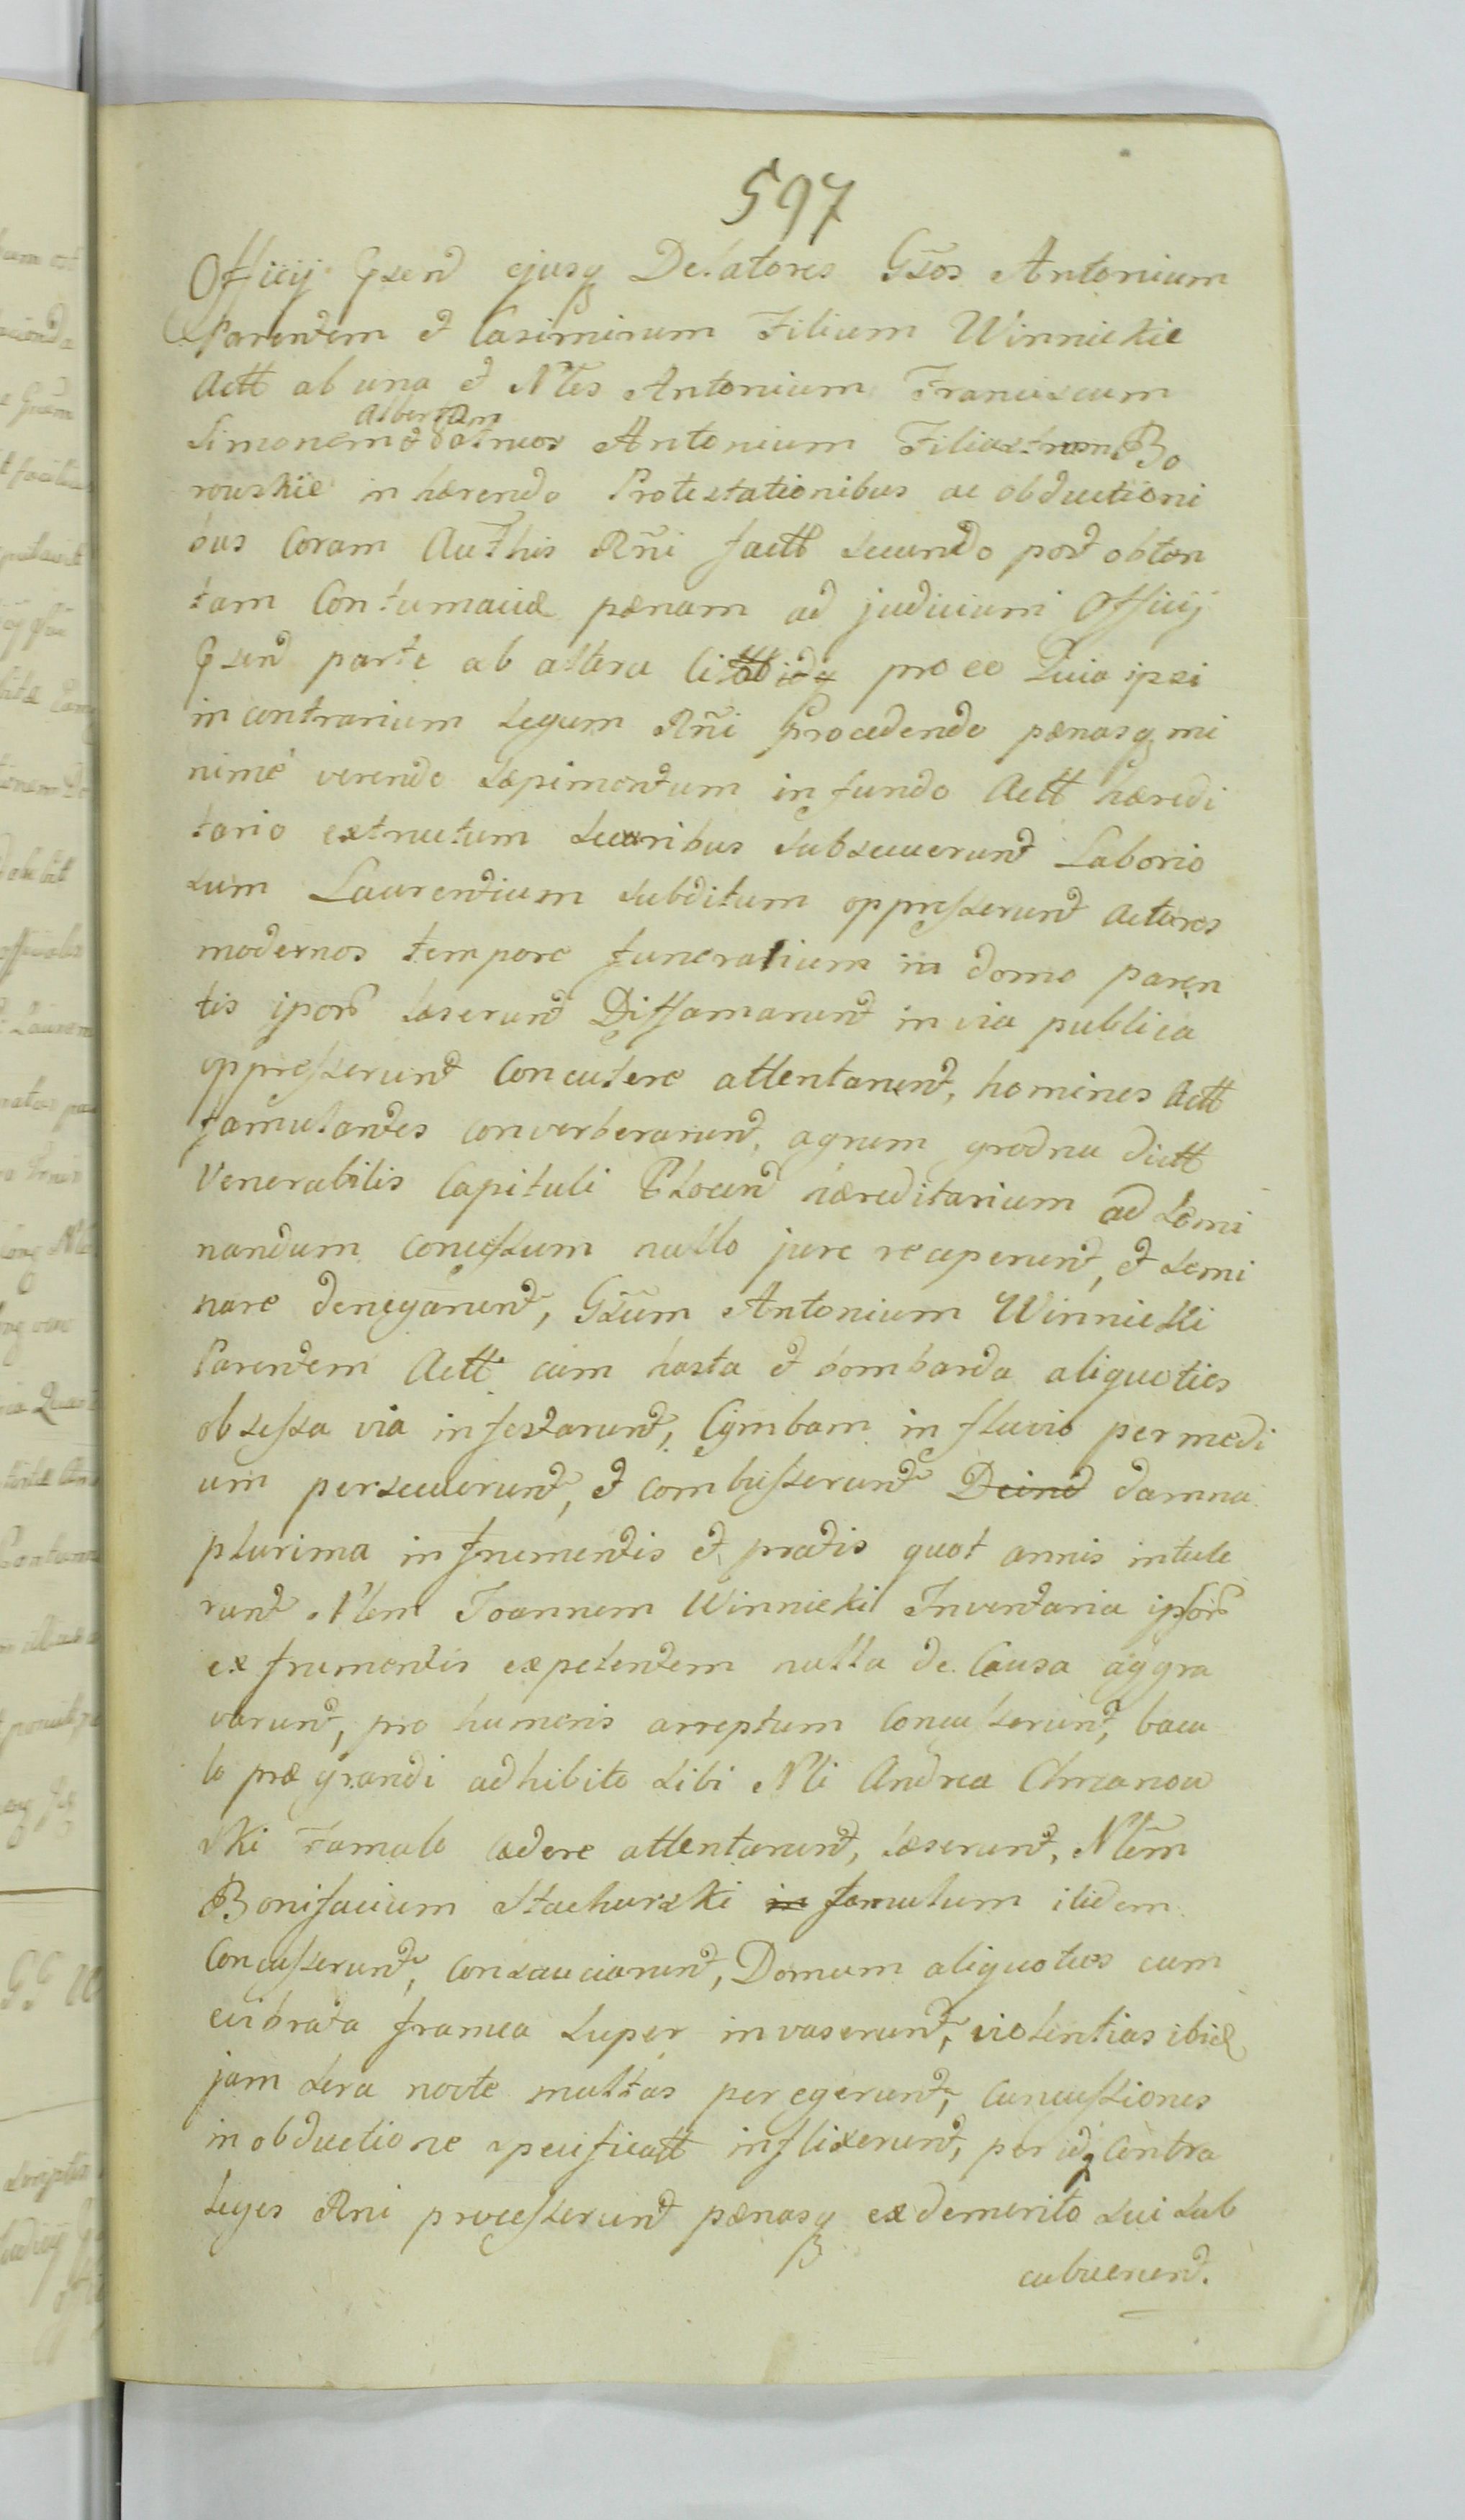 597
Officij Gsend ejusq Delatores Gsos Antonium
Parentem et Casimirum Filium Winnickie
Actt ab una et Nles Antonium Franciscum
Albertum
Simonem et Patruos Antonium Filiastrum Bo
rowskie in hærendo Protestationibus ac obductioni
bus Coram Authis Rñi factt secundo post obten
tam Contumaciæ pænam ad judicium Officij
Gsend parte ab altera Citt idq pro eo Quia ipsi
in contrarium Legum Rñi procedendo pænasq mi
nimé verendo sæpimentum in fundo Actt hæredi
tario extructum securibus subsecuerunt Laborio
sum Laurentium subditum oppresserunt actores
modernos tempore funeralium in domo paren
tis ipors læserunt Diffamarunt in via publica
oppresserunt Concutere attentarunt, homines Actt
famulantes converberarunt, agrum grodna dictt
Venerabilis Capituli Plocen hæreditarium ad semi
nandum concessum nullo jure receperunt, et semi
nare denegarunt, Gsum Antonium Winnicki
Parentem Actt cum hasta et bombarda aliquoties
obsessa via infestarunt, Cymbam in fluvio per medi
um persecuerunt, et combusserunt Deind damna
plurima in frumentis et pratis quot annis intule
runt Nlem Joannem Winnicki Inventaria ipsors
ex frumentis expelentem nulla de Causa aggra
varunt, pro humeris arreptum Concusserunt, bacu
lo præ grandi adhibito sibi Nli Andrea Chrzanow
ski Famulo cædere attentarunt, læserunt, Nlem
Bonifacium Stachurski in famulum itidem
Concusserunt, consauciarunt, Domum aliquoties cum
evibrata framea super invaserunt, violentias ibid
jam sera nocte multas peregerunt, concussiones
in obductione specificatt inflixerunt, per idq Contra
Leges Rni processerunt pænasq ex demerito sui sub
cubuerunt.